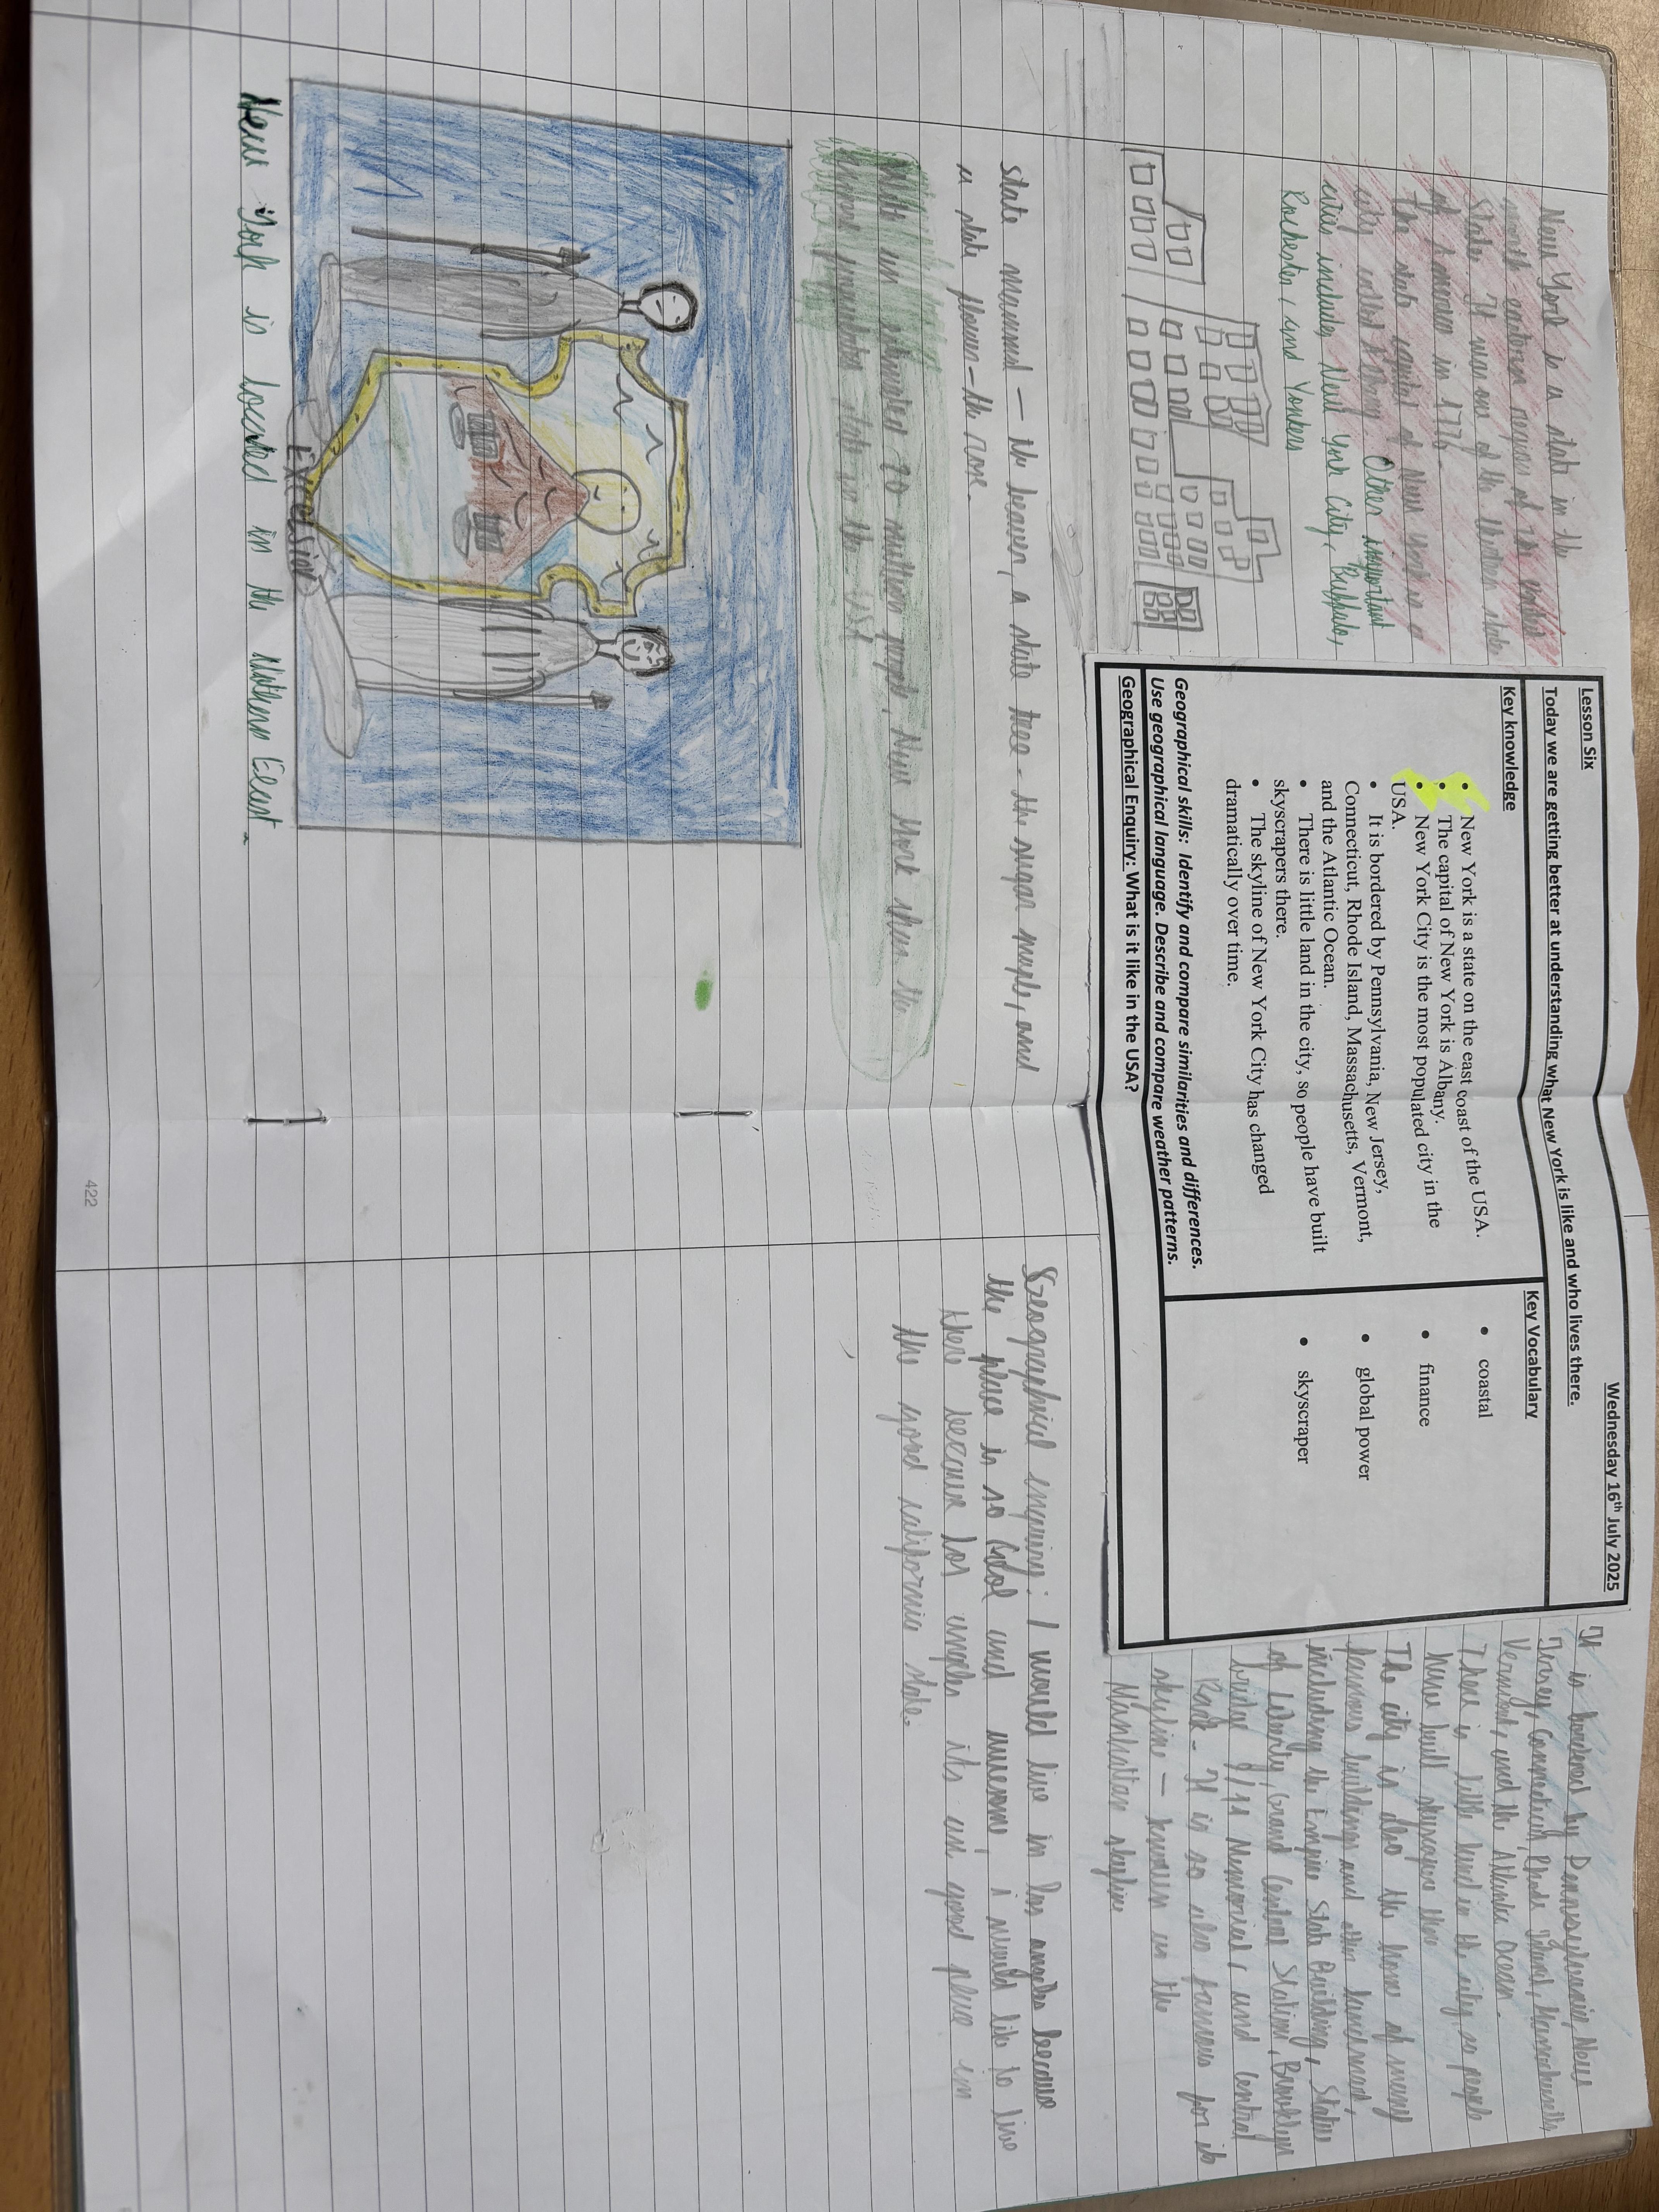 New York is a state in the
north eastern region of the united
state. It was one of the thirteen state
of American in 1776.
The state capital of New York is a
city called Albany. Other important
cities include, New York City, Buffalo,
Rochester, and Yonkers
Lesson Six
Wednesday 16th July 2025
Today we are getting better at understanding what New York is like and who lives there.
Key knowledge
• New York is a state on the east coast of the USA.
• The capital of New York is Albany.
• New York City is the most populated city in the
USA.
• It is bordered by Pennsylvania, New Jersey,
Connecticut, Rhode Island, Massachusetts, Vermont,
and the Atlantic Ocean.
• There is little land in the city, so people have built
skyscrapers there.
• The skyline of New York City has changed
dramatically over time.
Key Vocabulary
• coastal
• finance
• global power
• skyscraper
Geographical skills: Identify and compare similarities and differences.
Use geographical language. Describe and compare weather patterns.
Geographical Enquiry: What is it like in the USA?
It is bordered by Pennsylvania, New
Jersey, Connecticut, Rhode Island, Massachusetts,
Vermont, and the Atlantic Ocean.
There is little land in the city, so people
have built skyscraper there
The city is also the home of many
famous buildings and other landmark,
including the Empire State Building, Statue
of Liberty, Grand Central Station, Brooklyn
bridge 9/11 Memorial, and central
Park. It is so also famous for its
skyline — known as the
Manhattan skyline
state mammal — the beaver, a state tree - the sugar maple, and
a state flower - the rose.
With an estimated 20 million people, New York
state in the USA
EXCELSIOR
New York is located in the Nothern East.
Geographical enquiry: I would live in los angeles because
the place is so Cool and awesome, i would like to live
there because los angeles its an good place in
the good california state.
422